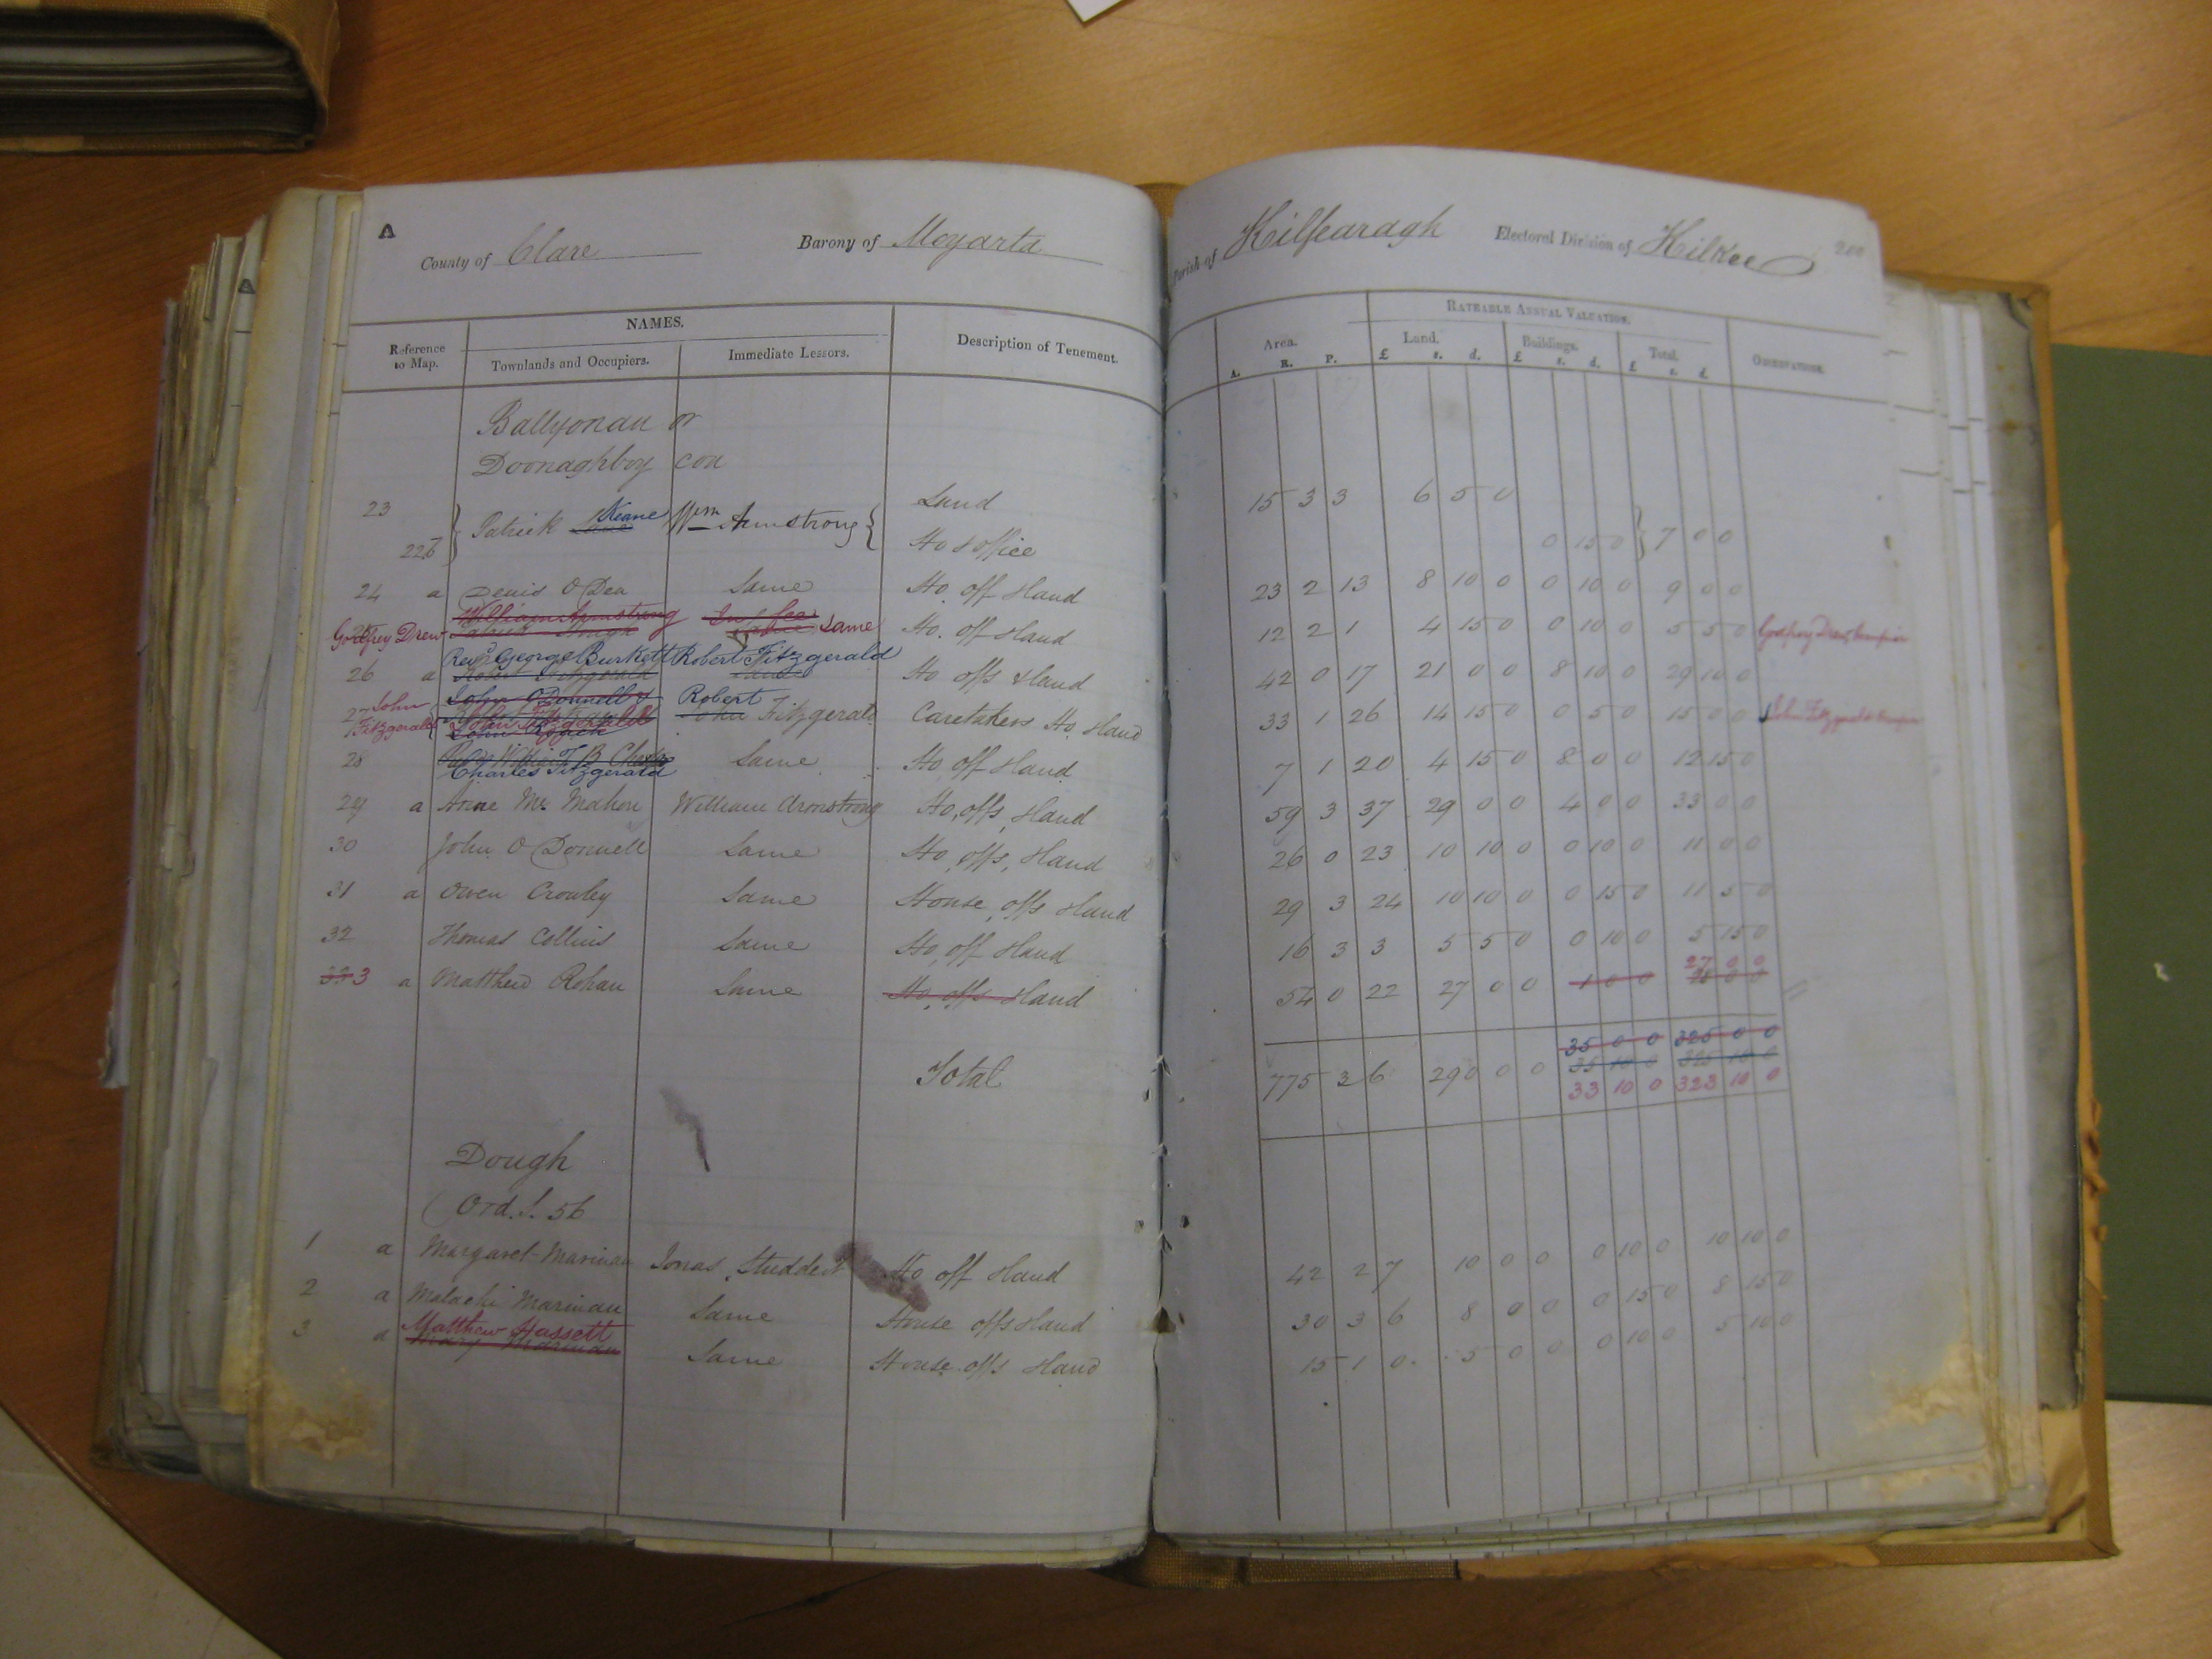 A
County of Clare Barony of Moyarta Parish of Kilfearagh Electoral Division of Kilkee 200
Reference to Map. NAMES. Description of Tenement. Area. RATEABLE ANNUAL VALUATION. OBSERVATIONS
Townlands and Occupiers. Immediate Lessors. Land. Buildings. Total.
A. R. P. £ s. d. £ s. d. £ s. d.
Ballyonan or
Doonaghboy con
23 Patrick Keane Wm Armstrong Land 15 3 3 6 5 0
22b Ho & office 0 15 0 7 0 0
24 a Denis O Dea Same Ho. off & land 23 2 13 8 10 0 0 10 0 9 0 0
William Armstrong In fee
Godfrey Drew Same Ho. off & land 12 2 1 4 15 0 0 10 0 5 5 0 Godfrey Drew
Revd George Burkett Robert Fitzgerald
26 a Robert Fitzgerald Same Ho offs & land 42 0 17 21 0 0 8 10 0 29 10 0
John O'Donnell Robert
27 John Fitzgerald John Fitzgerald John Fitzgerald Caretakers Ho. & land 33 1 26 14 15 0 0 5 0 15 0 0 John Fitzgerald
28 Same Ho off & land 7 1 20 4 15 0 8 0 0 12 15 0
Charles Fitzgerald
29 a Anne Mc Mahon William Armstrong Ho, offs, & land 59 3 37 29 0 0 4 0 0 33 0 0
30 John O Donnell Same Ho, offs, & land 26 0 23 10 10 0 0 10 0 11 0 0
31 a Owen Crowley Same House, offs & land 29 3 24 10 10 0 0 15 0 11 5 0
32 Thomas Collins Same Ho, off & land 16 3 3 5 5 0 0 10 0 5 15 0
27 0 0
33 3 a Matthew Rohan Same Ho, offs & land 54 0 22 27 0 0 1 0 0 28 0 0
35 0 0 325 0 0
Total 775 3 6 290 0 0 35 10 0 325 10 0
33 10 0 323 10 0
Dough
Ord. S. 56
1 a Margaret Marinan Jonas Studdert Ho off & land 42 2 7 10 0 0 0 10 0 10 10 0
2 a Malachi Marinan Same House offs & land 30 3 6 8 0 0 0 15 0 8 15 0
Matthew Hassett
3 a Mary Marinan Same House offs & land 15 1 0 5 0 0 0 10 0 5 10 0